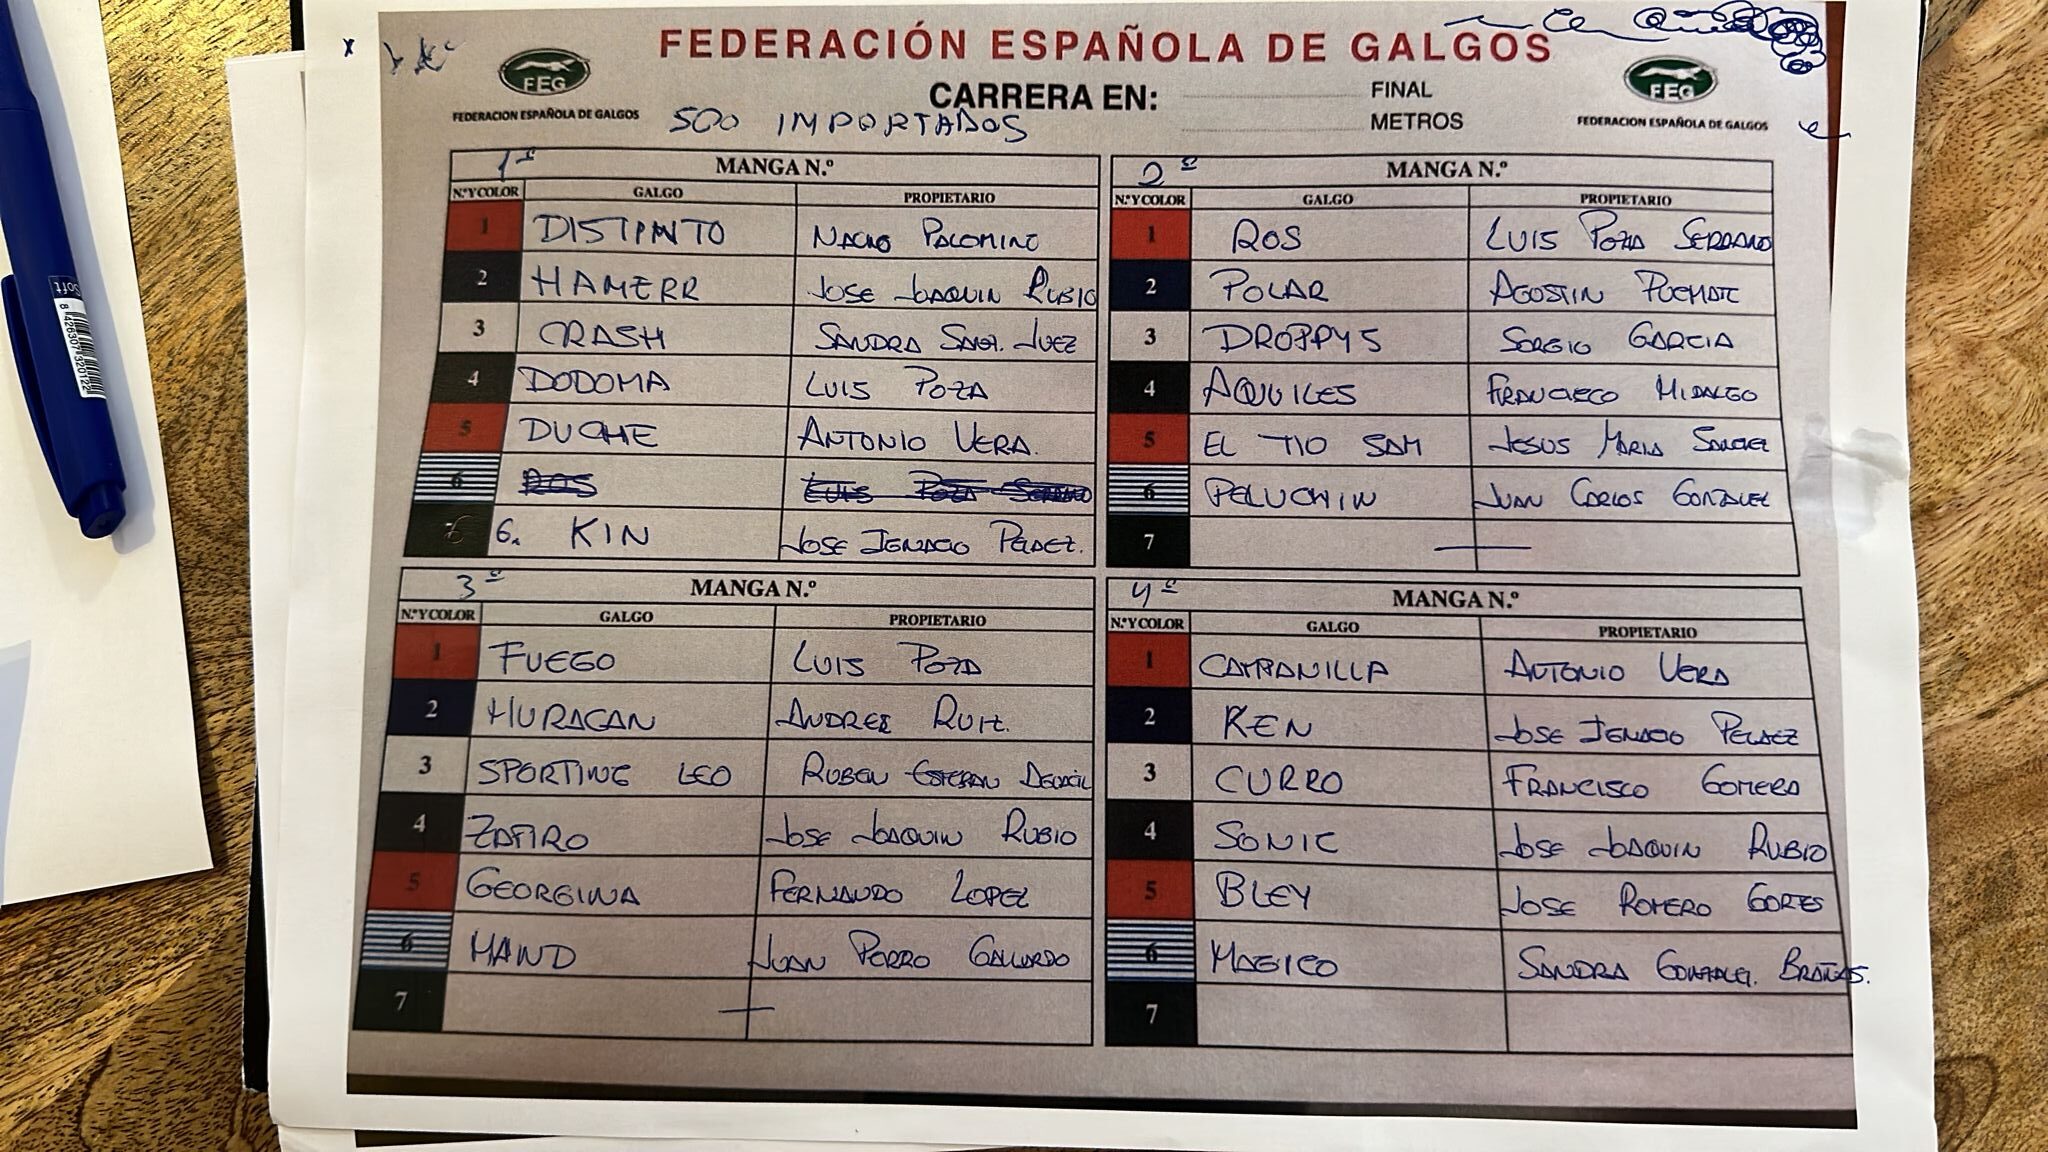 FEDERACIÓN ESPAÑOLA DE GALGOS
FEG
FEDERACION ESPAÑOLA DE GALGOS
CARRERA EN:
FINAL
METROS
500 IMPORTADOS
FEG
FEDERACION ESPAÑOLA DE GALGOS
Soft
8 426307 920122
1ª MANGA N.º
N.º Y COLOR GALGO PROPIETARIO
1 DISTINTO NACHO PALOMINO
2 HAMERR JOSE JOAQUIN RUBIO
3 CRASH SANDRA JUEZ
4 DODOMA LUIS POZA
5 DUCHE ANTONIO VERA.
6 ROS LUIS POZA SERRANO
6. KIN JOSE IGNACIO PELAEZ.
2ª MANGA N.º
N.º Y COLOR GALGO PROPIETARIO
1 ROS LUIS POZA SERRANO
2 POLAR AGOSTIN
3 DROPPYS SERGIO GARCIA
4 AQUILES FRANCISCO HIDALGO
5 EL TIO SAM JESUS MARIA
6 PELUCHIN JUAN CARLOS GONZALEZ
7
3ª MANGA N.º
N.º Y COLOR GALGO PROPIETARIO
1 FUEGO LUIS POZA
2 HURACAN ANDRES RUIZ.
3 SPORTING LEO RUBEN ESTEBAN
4 ZAFIRO JOSE JOAQUIN RUBIO
5 GEORGINA FERNANDO LOPEZ
6 MAND JUAN PERRO GALLARDO
7
4ª MANGA N.º
N.º Y COLOR GALGO PROPIETARIO
1 CAMPANILLA ANTONIO VERA
2 KEN JOSE IGNACIO PELAEZ
3 CURRO FRANCISCO GOMERA
4 SONIC JOSE JOAQUIN RUBIO
5 BLEY JOSE ROMERO
6 MAGICO SANDRA BRAÑAS.
7